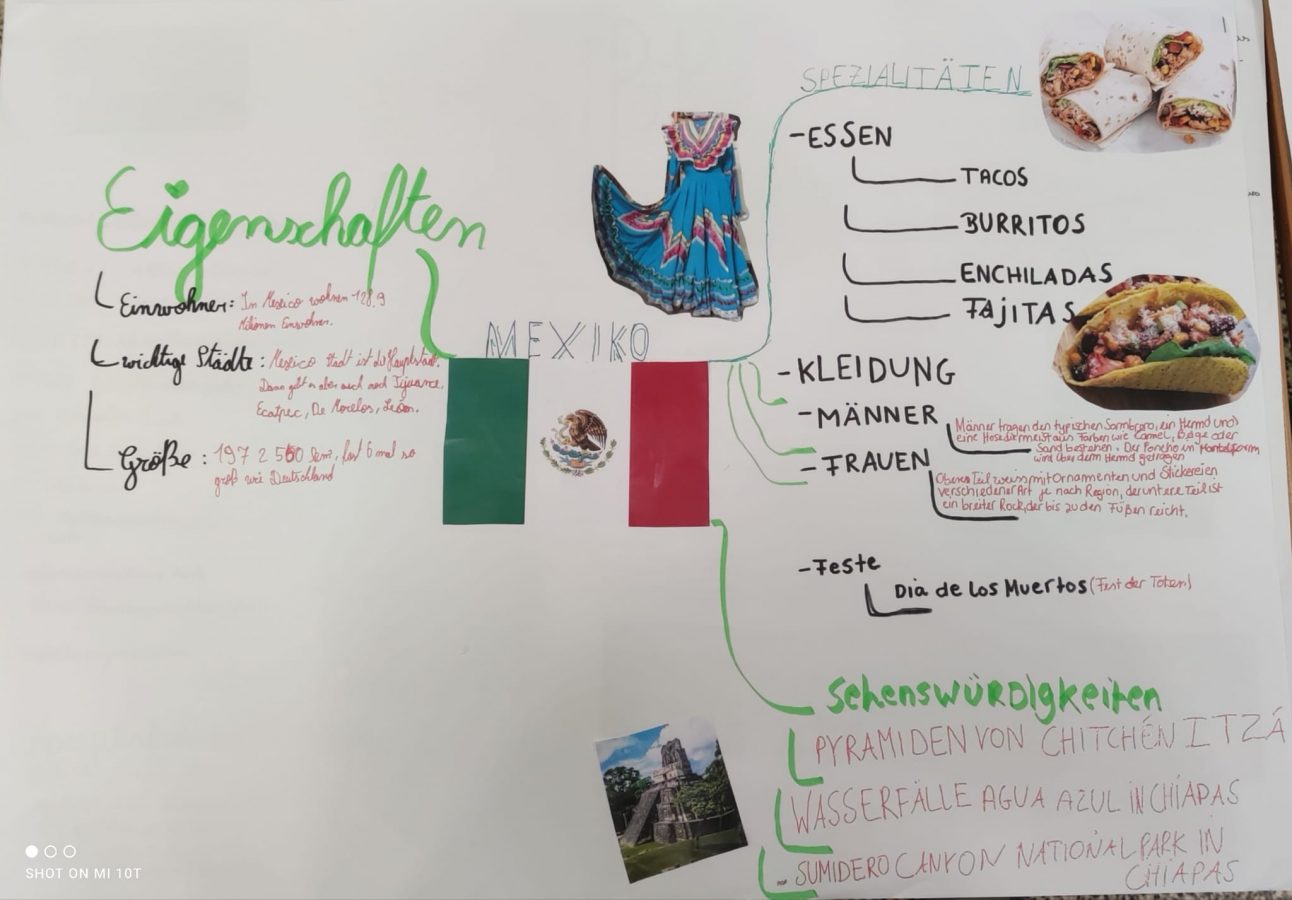 Eigenschaften
Einwohner: In Mexico wohnen 128,9
Milionen Einwohner.
wichtige Städte: Mexico Stadt ist die Hauptstadt.
Dann gibt es aber auch noch Tijuana,
Ecatpec, De Morelos, León.
Größe: 197 2 550 , fast 6 mal so
groß wie Deutschland
MEXIKO
SPEZIALITÄTEN
-ESSEN
TACOS
BURRITOS
ENCHILADAS
FAJITAS
-KLEIDUNG
-MÄNNER
Männer tragen den typischen Sombrero, ein Hemd und
eine Hose die meist aus Farben wie Camel, Beige oder
Sand bestehen. Der Poncho in Mantelform
wird über dem Hemd getragen
-FRAUEN
Oberes Teil weiss, mit Ornamenten und Stickereien
verschiedener Art je nach Region, der untere Teil ist
ein breiter Rock, der bis zu den Füßen reicht.
-Feste
Dia de Los Muertos (Fest der Toten)
Sehenswürdigkeiten
PYRAMIDEN VON CHITCHÉN ITZÁ
WASSERFÄLLE AGUA AZUL IN CHIAPAS
SUMIDERO CANYON NATIONALPARK IN
CHIAPAS
SHOT ON MI 10T